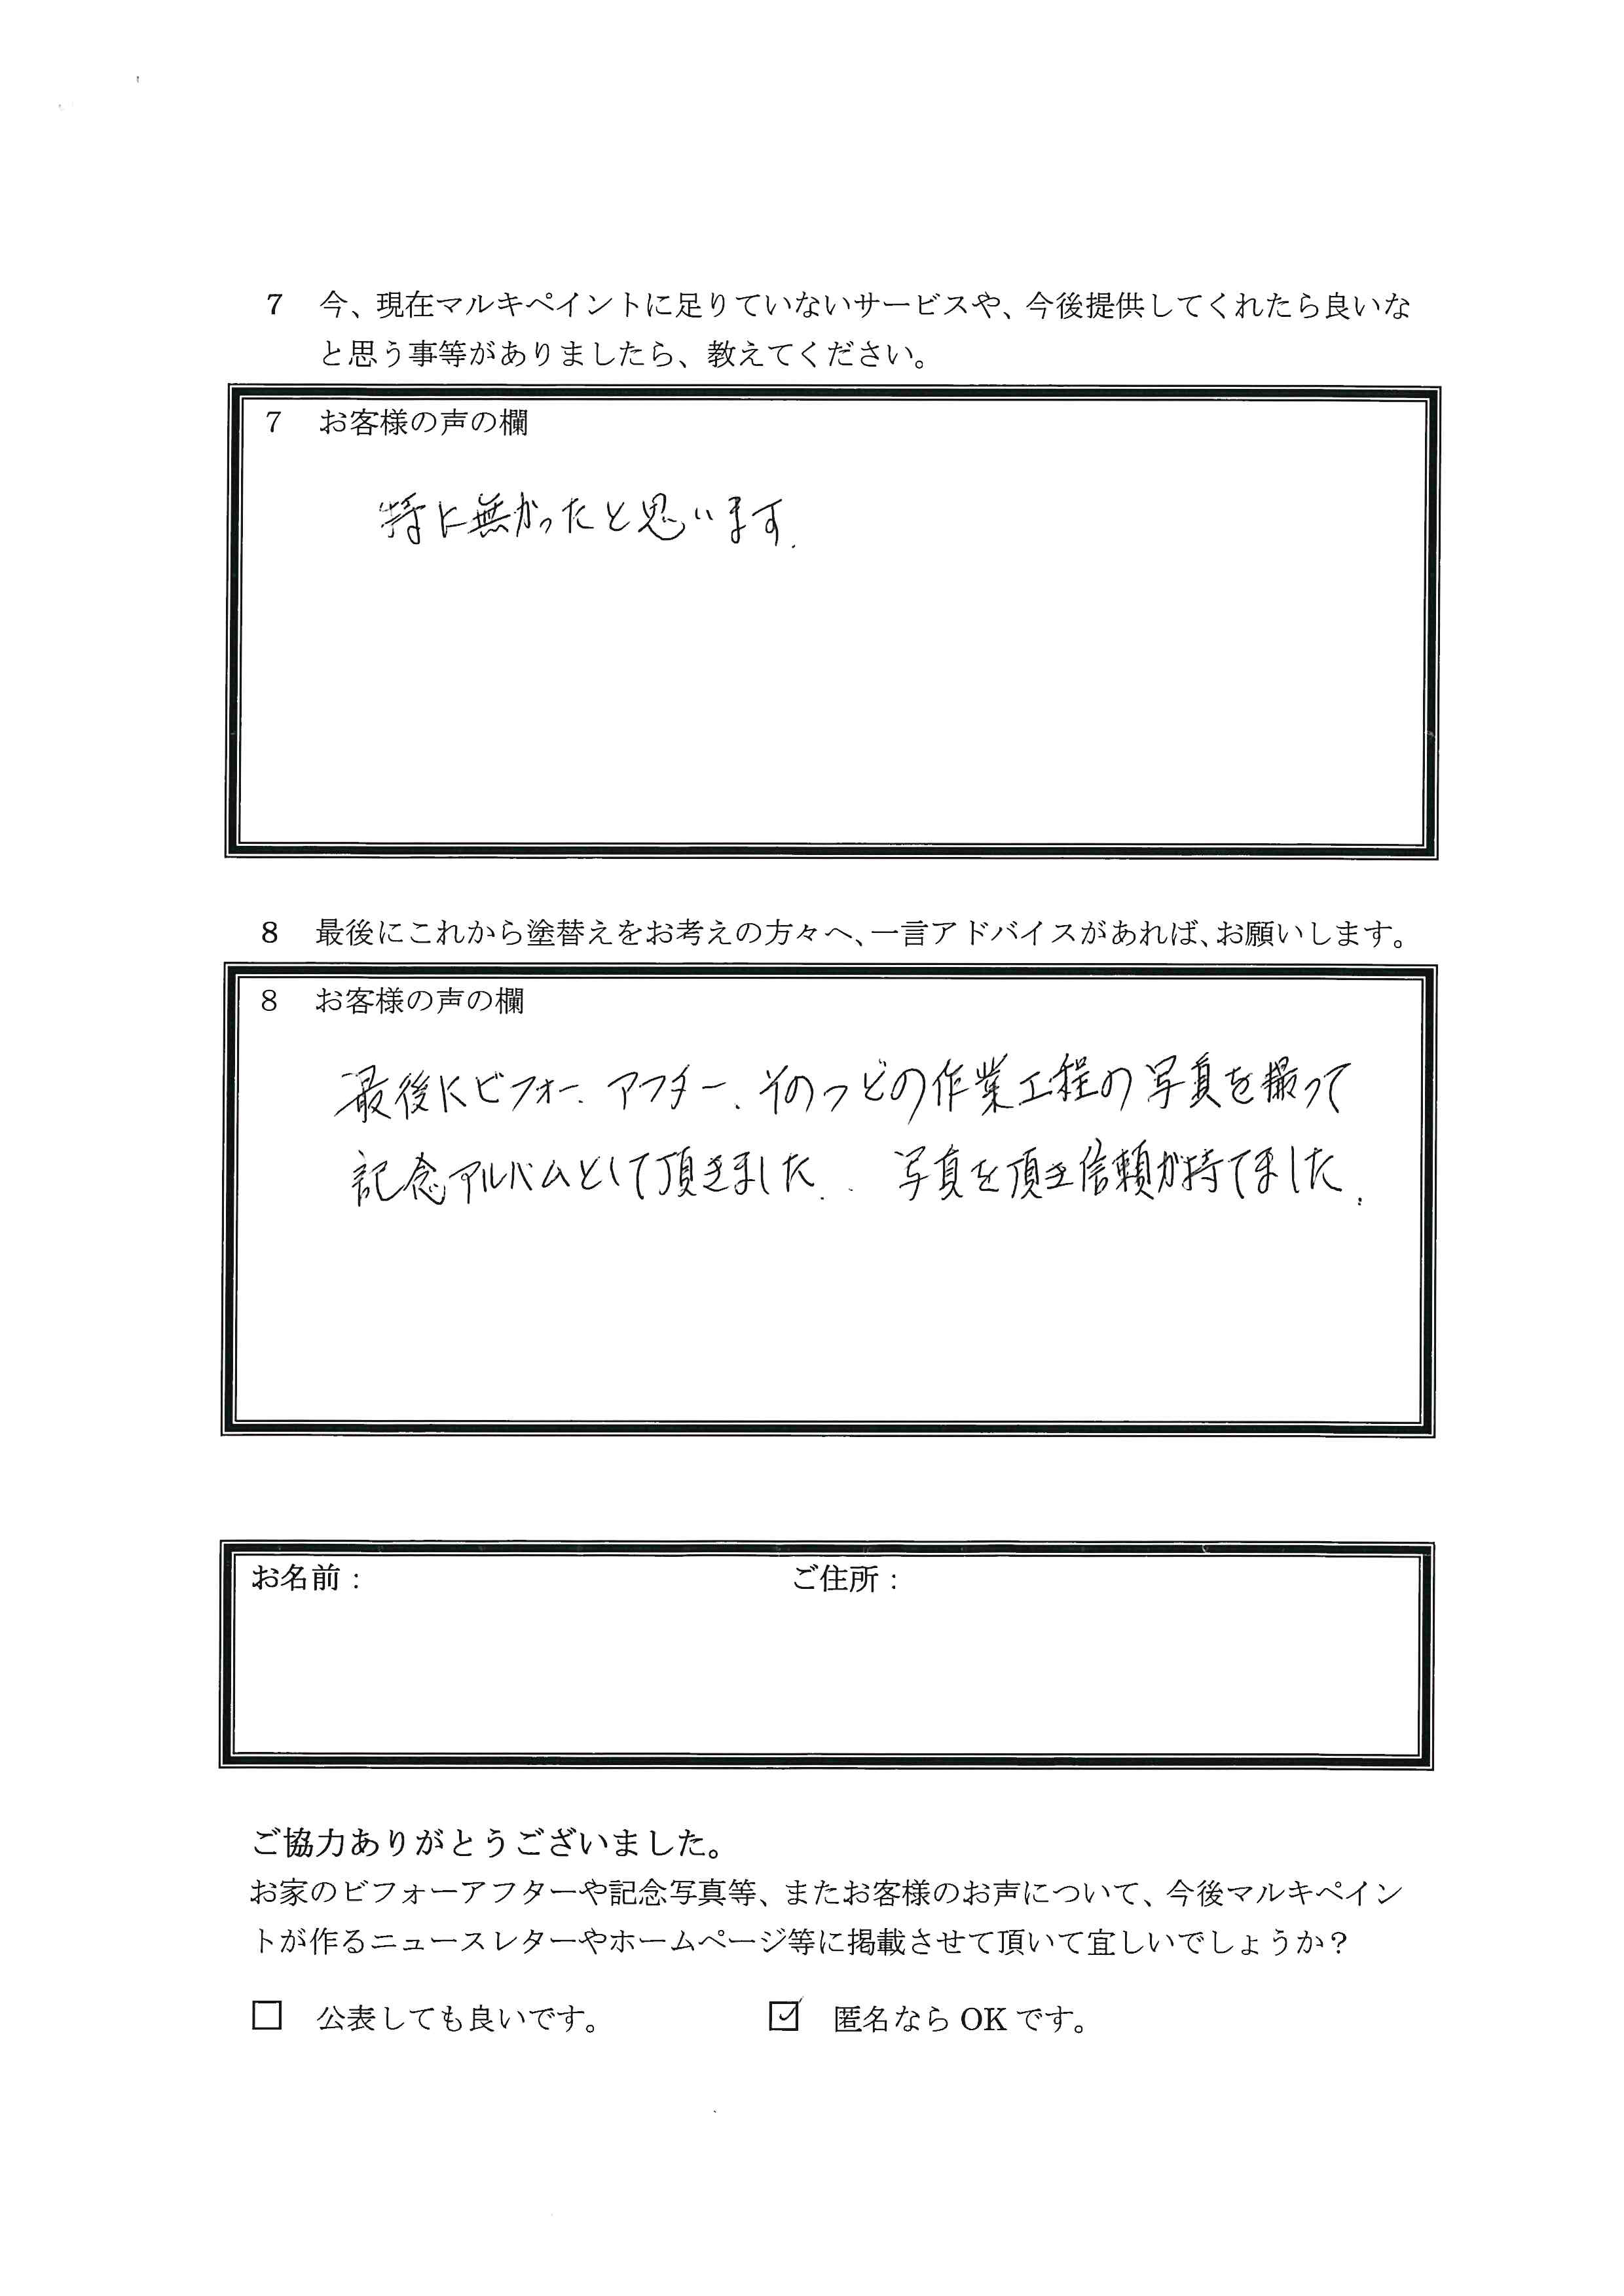 7 今、現在マルキペイントに足りていないサービスや、今後提供してくれたら良いな
と思う事等がありましたら、教えてください。
7 お客様の声の欄
特に無かったと思います.
8 最後にこれから塗替えをお考えの方々へ、一言アドバイスがあれば、お願いします。
8 お客様の声の欄
最後にビフォー、アフター、そのつどの作業工程の写真を撮って
記念アルバムとして頂きました. 写真を頂き信頼が持てました.
お名前： ご住所：
ご協力ありがとうございました。
お家のビフォーアフターや記念写真等、またお客様のお声について、今後マルキペイン
トが作るニュースレターやホームページ等に掲載させて頂いて宜しいでしょうか？
□ 公表しても良いです。 ☑ 匿名なら OK です。